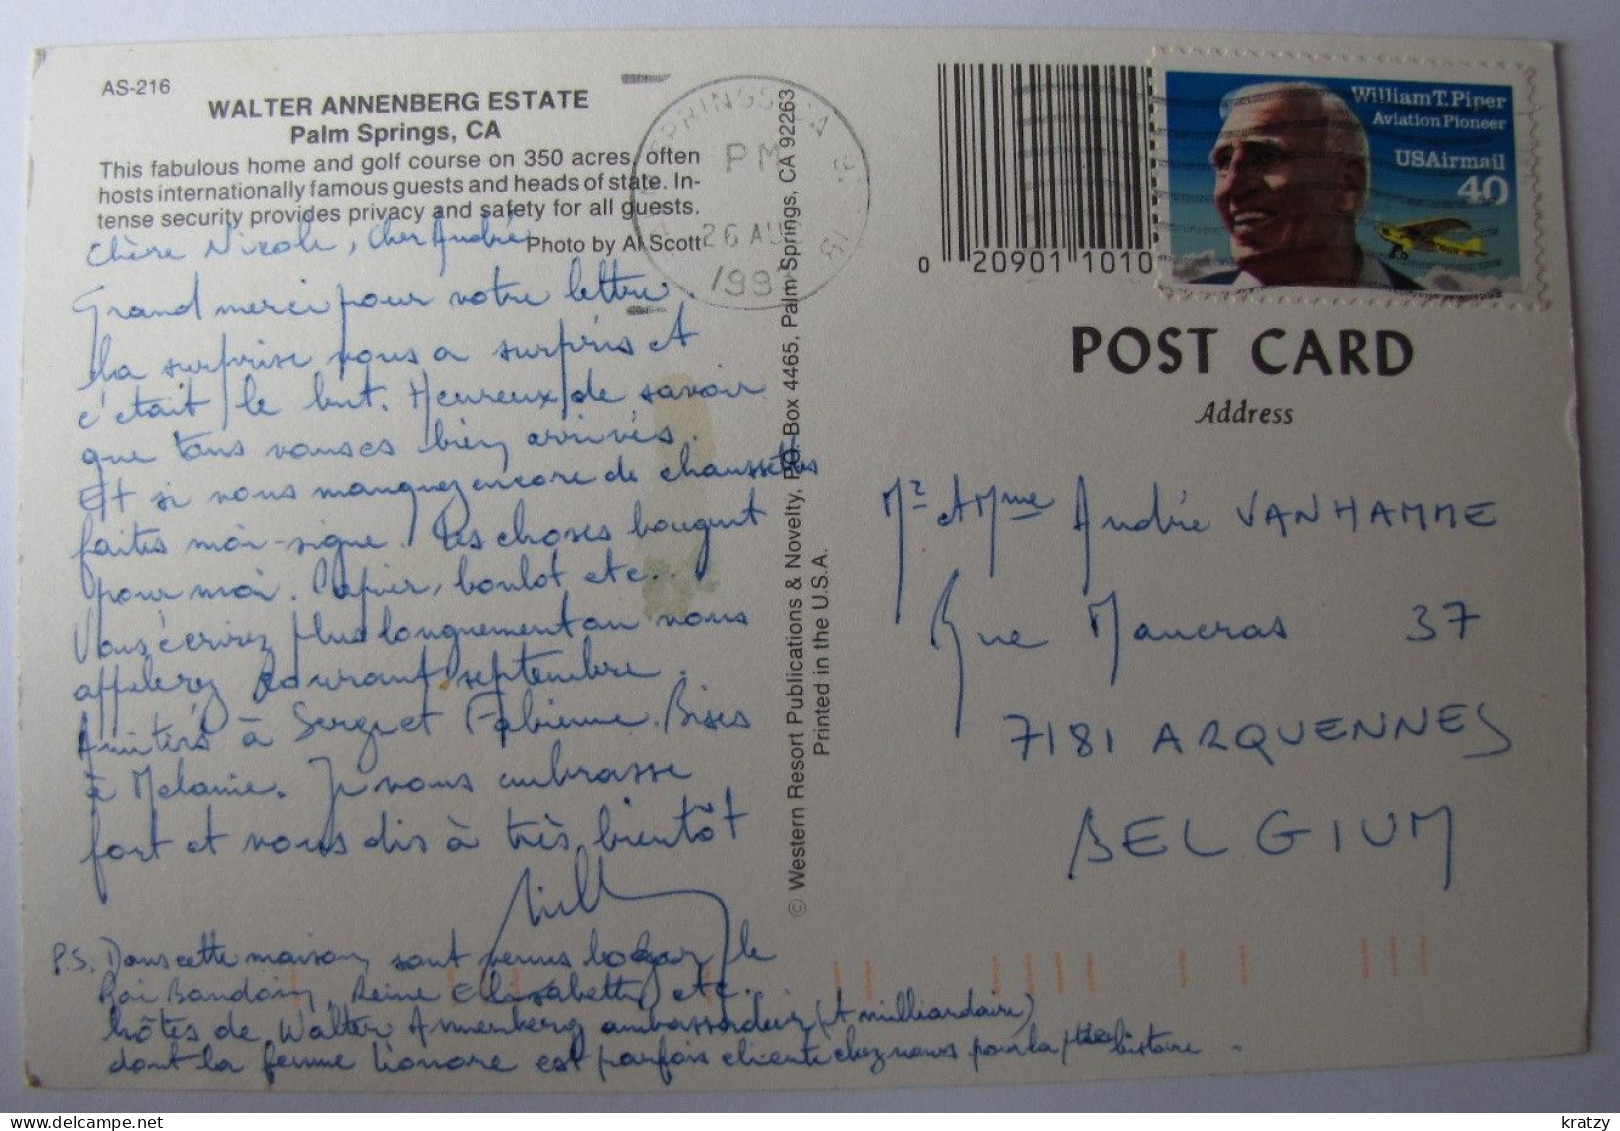 AS-216
WALTER ANNENBERG ESTATE
Palm Springs, CA
This fabulous home and golf course on 350 acres, often
hosts internationally famous guests and heads of state. In-
tense security provides privacy and safety for all guests.
Photo by Al Scott
Chère Nicole, Cher André,
Grand merci pour votre lettre.
La surprise vous a surpris et
c'était le but. Heureux de savoir
que tous vous es bien arrivés.
Et si vous manquez encore de chaussettes
faites moi-signe. Les choses bougent
pour moi. Papier, boulot etc..
Vous écrirez plus longuement ou vous
appelerez courant septembre.
Amitiés à Serge et Fabienne. Bises
à Melanie. Je vous embrasse
fort et vous dis à très bientôt
P.S. Dans cette maison sont venus loger le
Roi Baudoin, Reine Elisabeth, etc..
hôtes de Walter Annenberg ambassadeur (et milliardaire)
dont la femme Lionore est parfois cliente chez nous pour la petite histoire.
© Western Resort Publications & Novelty, P.O. Box 4465, Palm Springs, CA 92263
Printed in the U.S.A.
SPRINGS CA
PM
26 AU
199
0 20901 11010
William T. Piper
Aviation Pioneer
USAirmail
40
POST CARD
Address
Mr et Mme André VANHAMME
Rue Maucras 37
7181 ARQUENNES
BELGIUM
kratzy